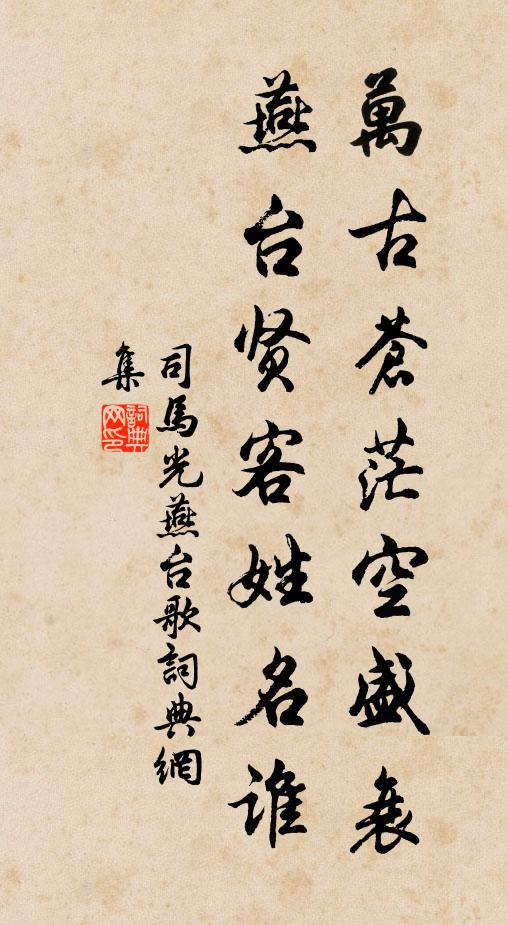 萬古蒼茫空盛衰
燕台贤客姓名誰
司馬光燕台歌詞典網
集
詞典
网印